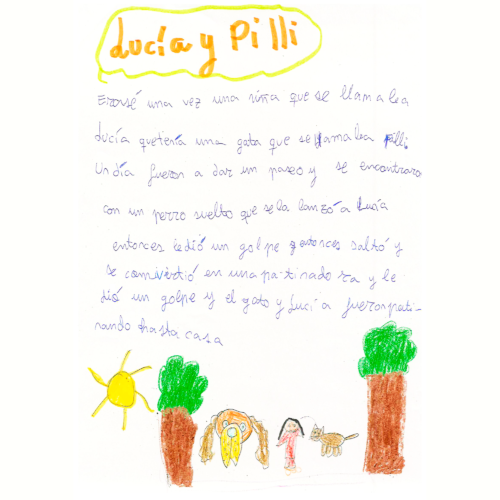 Lucía y Pilli
Erasé una vez una niña que se llamalea
Lucía quetenía una gata que se llamalea Pilli
Un día fueron a dar un paseo y se encontraro
con un perro suelto que sela lanzó a Lucía
entonces ledió un golpe y entonces saltó y
se comvirtió en una patinadora y le
dió un golpe y el gato y Lucía fueronpati-
nando hasta casa